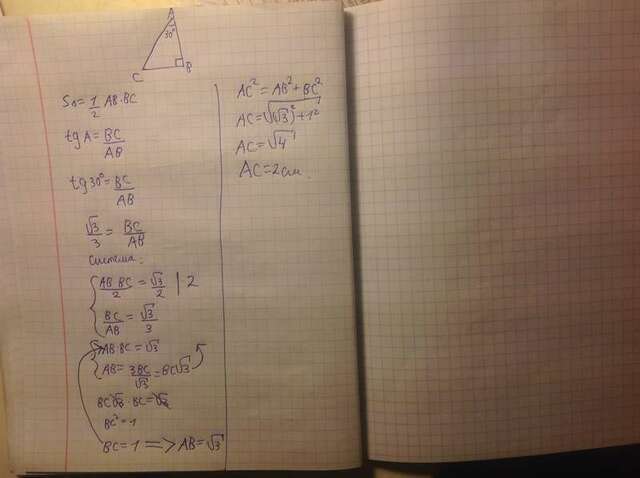 A
30°
C
B
S△ = 1/2 AB·BC
tg A = BC/AB
tg 30° = BC/AB
√3/3 = BC/AB
Система:
AB·BC/2 = √3/2 | 2
BC/AB = √3/3
AB·BC = √3
AB = 3BC/√3 = BC√3
BC√3·BC = √3
BC² = 1
BC = 1 => AB = √3
AC² = AB² + BC²
AC = √(√3)² + 1²
AC = √4
AC = 2см.